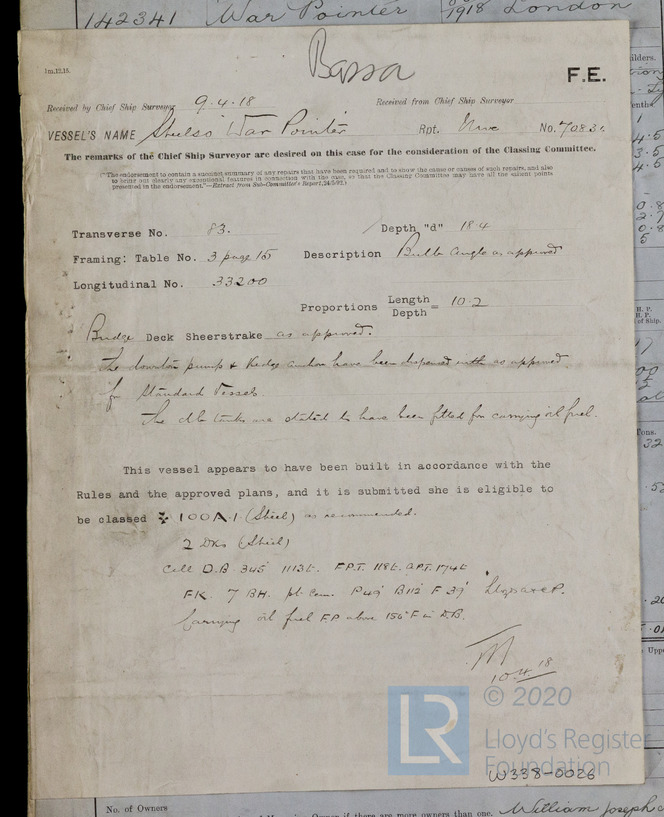 142341 War Pointer 1918 London
Bassa
1m.12.15.
F.E.
Received by Chief Ship Surveyor 9.4.18 Received from Chief Ship Surveyor
VESSEL'S NAME War Pointer Rpt. Nwc No. 70831
The remarks of the Chief Ship Surveyor are desired on this case for the consideration of the Classing Committee.
("The endorsement to contain a succinct summary of any repairs that have been required and to show the cause or causes of such repairs, and also
to bring out clearly any exceptional features in connection with the case, so that the Classing Committee may have all the salient points
presented in the endorsement."—Extract from Sub-Committee's Report, 24/5/92.)
Transverse No. 83. Depth "d" 18.4
Framing: Table No. 3 page 15 Description Bulb angle as approved
Longitudinal No. 33200
Proportions Length / Depth = 10.2
Bridge Deck Sheerstrake as approved.
The downton pump & Kedge anchor have been dispensed with as approved
for Standard Vessels.
The db tanks are stated to have been fitted for carrying oil fuel.
This vessel appears to have been built in accordance with the
Rules and the approved plans, and it is submitted she is eligible to
be classed ✠ 100A.1. (Steel) as recommended.
2 Dks (Steel)
Cell D.B. 345' 1113t. F.P.T. 118t. A.P.T. 174t
F.K. 7 BH. P49' B112' F39'
Carrying oil fuel F.P. above 150°F in D.B.
10.4.18
LR
© 2020
Lloyd's Register
Foundation
W338-0026
No. of Owners
if there are more owners than one. William Joseph